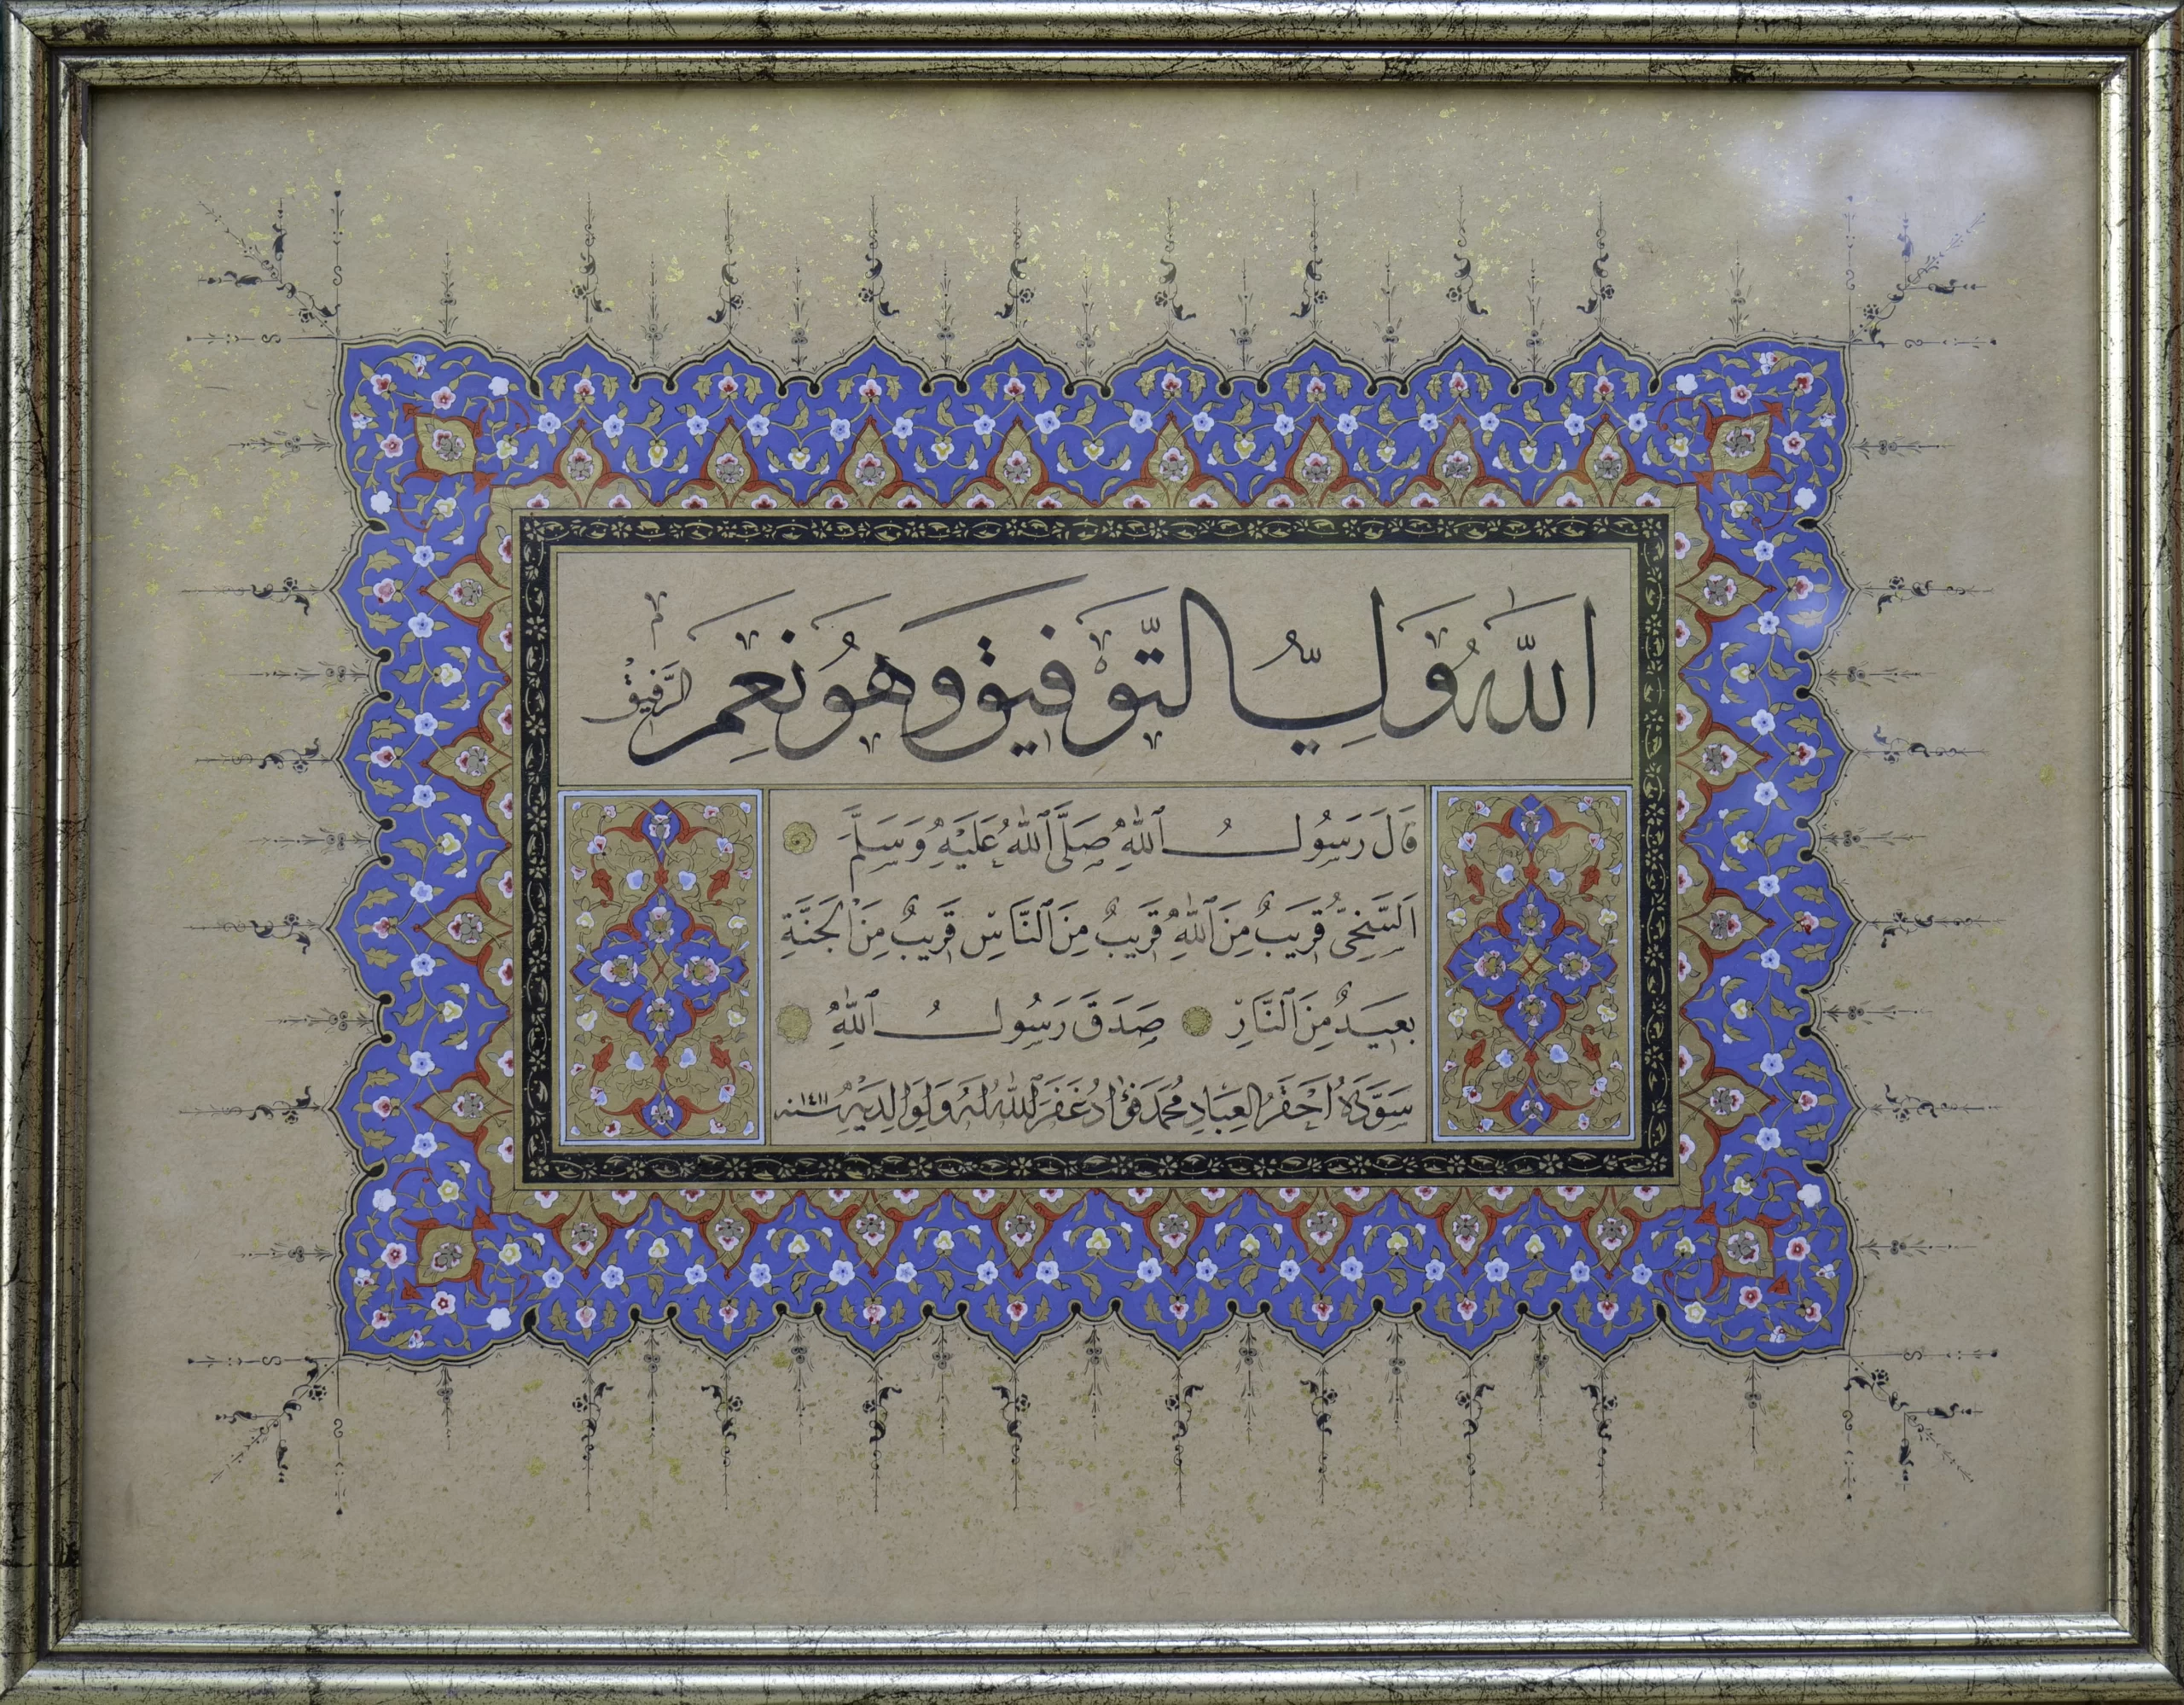 اللّٰهُ وَلِيُّ التَّوْفِيقِ وَهُوَ نِعْمَ الرَّفِيقْ
قَالَ رَسُولُ اللّٰهِ صَلَّى اللّٰهُ عَلَيْهِ وَسَلَّمَ
اَلسَّخِىُّ قَرِيبٌ مِنَ اللّٰهِ قَرِيبٌ مِنَ النَّاسِ قَرِيبٌ مِنَ الْجَنَّةِ
بَعِيدٌ مِنَ النَّارِ صَدَقَ رَسُولُ اللّٰهِ
سَوَّدَهُ اَحْقَرُ الْعِبَادِ مُحَمَّد فُؤٰاد غَفَرَ اللّٰهُ لَهُ وَلِوَالِدَيْهِ سنه ١٤١١